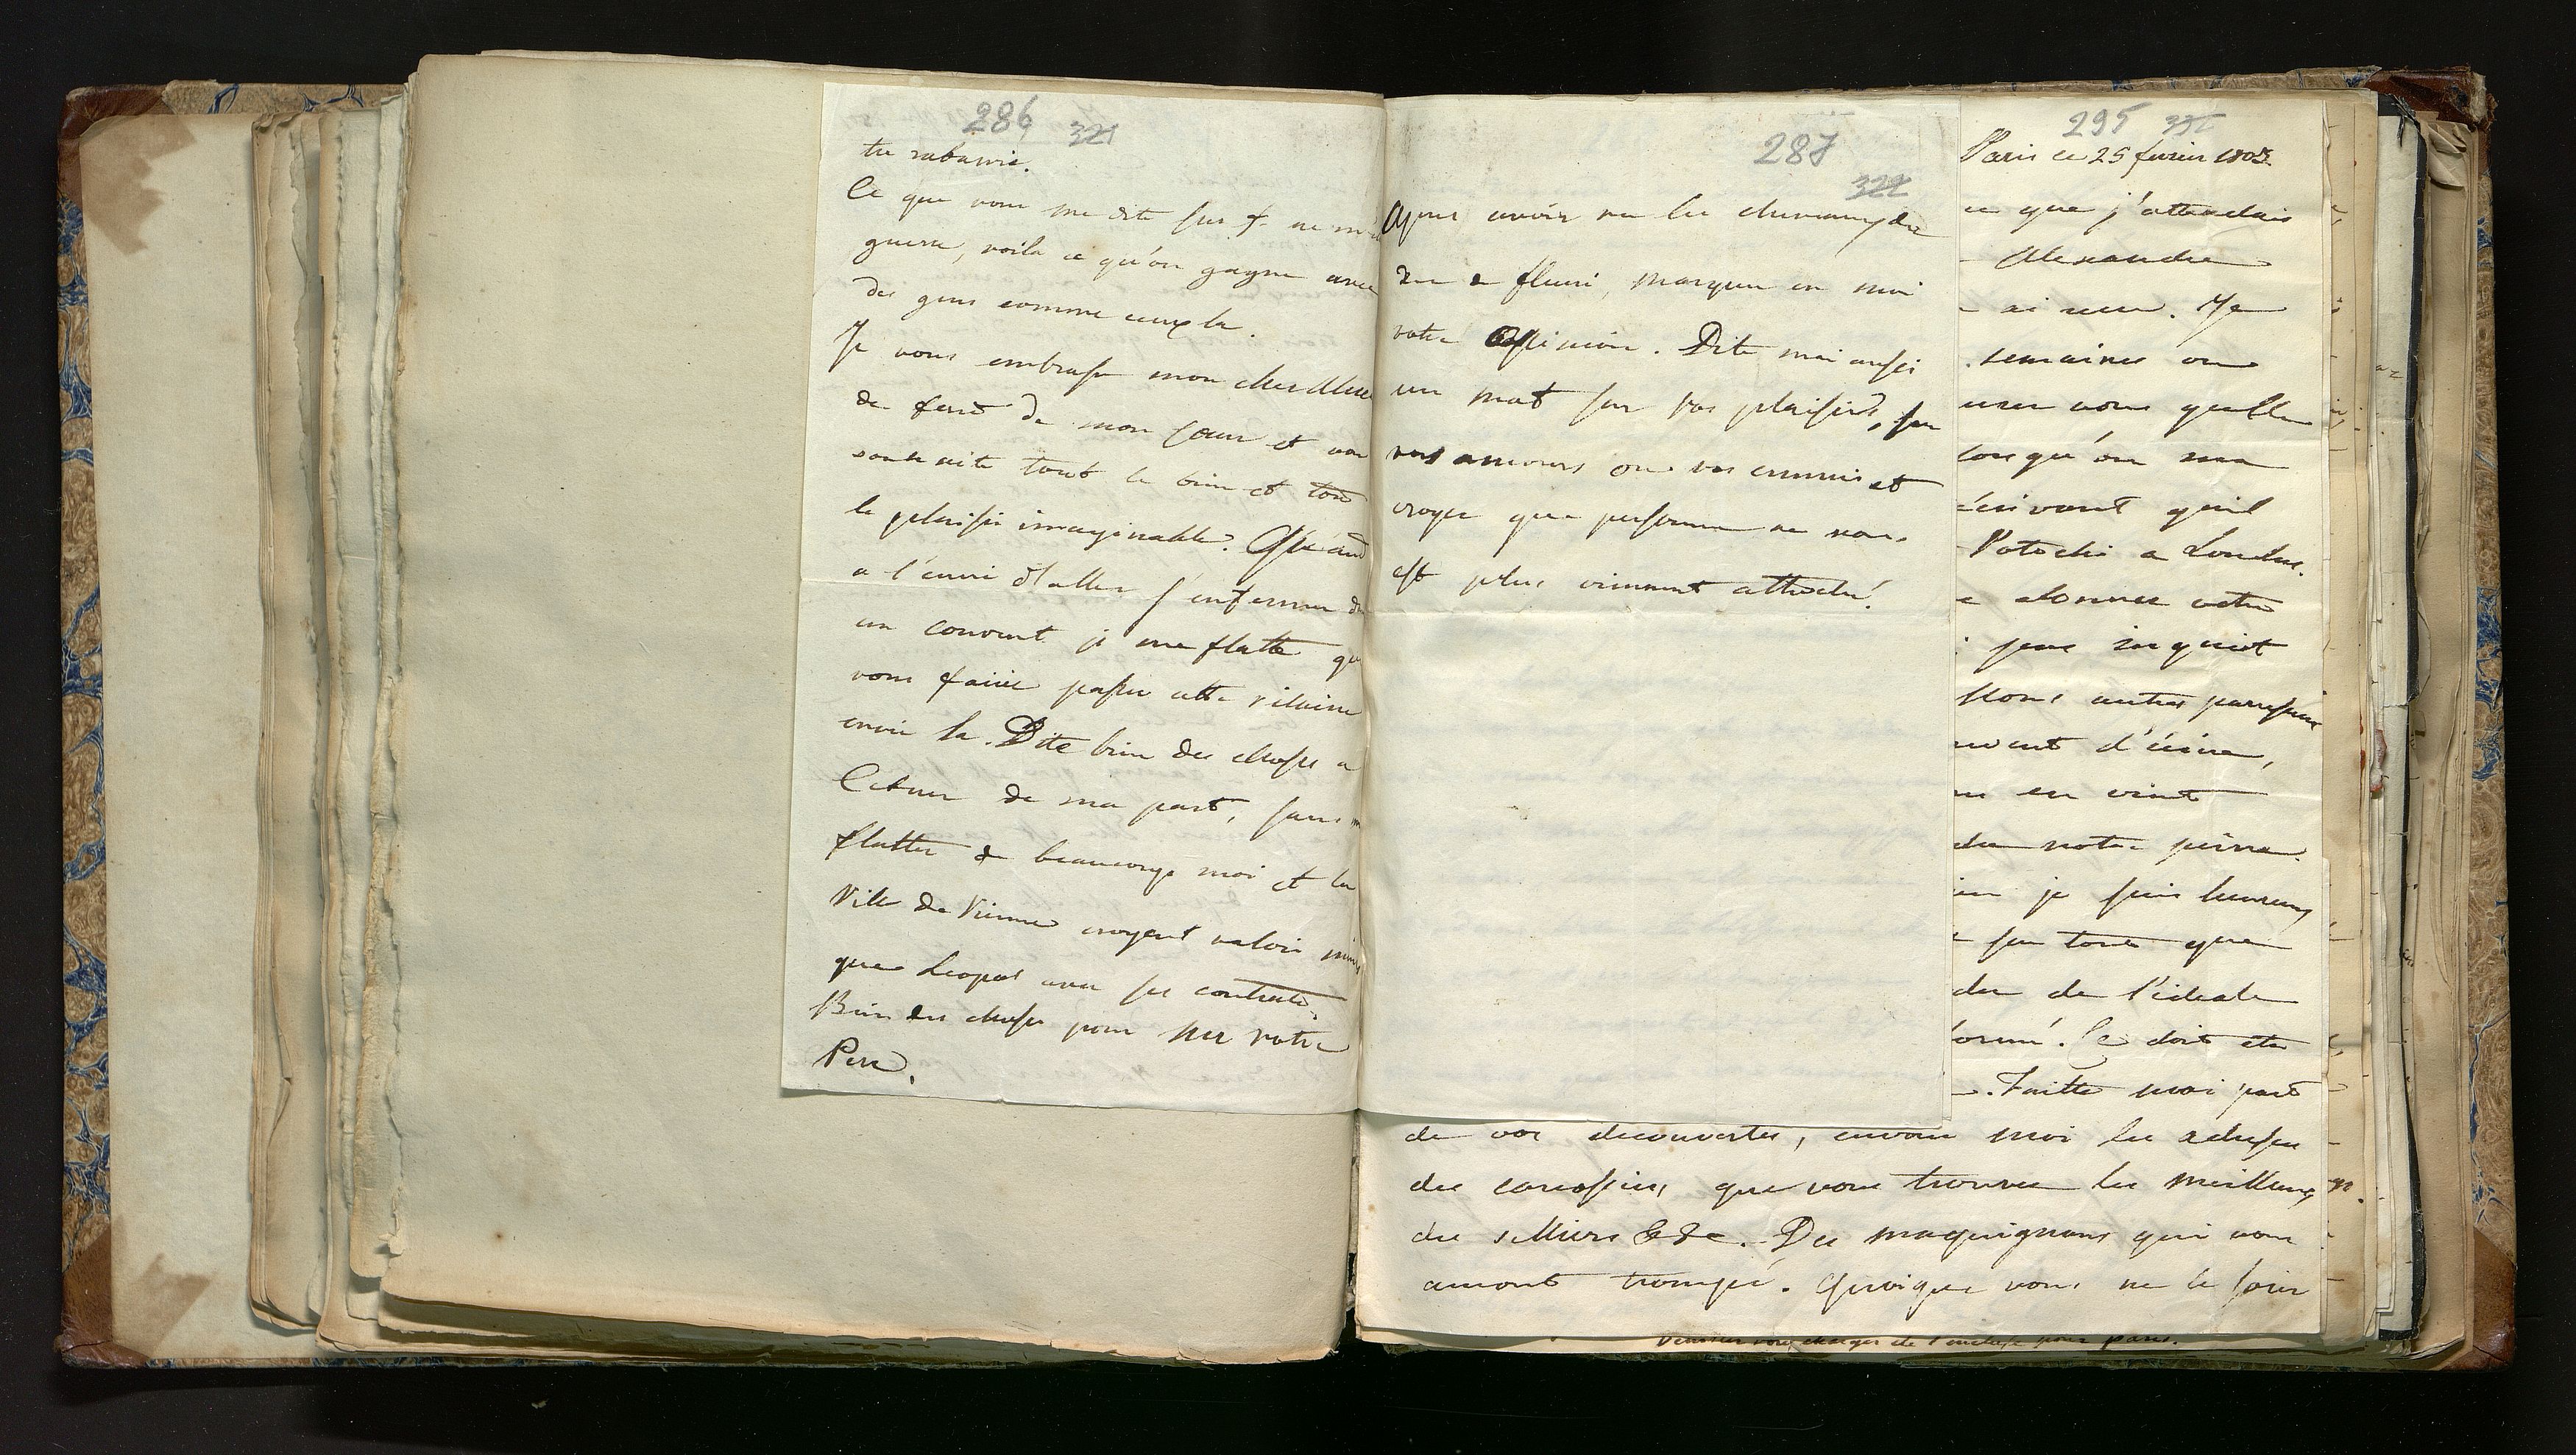 286 321
tu rabavis.
Ce que vous me dite sur f. ne m'é
guerre, voila ce qu'on gagne avec
des gens comme ceux la.
Je vous embrasse mon cher Alex
de fond de mon cœur et vou
souhaite tout le bien et tout
le plaisir imaginable. Quand
a l'envi d'aller s'enfermer da
un couvent je me flatte qu
vous faires passer cette vilaine
envie la. Dite bien des choses a
de ma part, sans m
flatter de beaucoup moi et la
Ville de Vienne croyent valoir mieux
que Leopol avec ses contrats,
Bien des choses pour Mr votre
Pere.
287
322
Apres avoir vu les chevaux de
rue de fleuri, marquer en moi
votre Opinion. Dite moi aussi
un mot sur vos plaisirs, sur
vos amours ou vos ennuis et
croyez que personne ne vous
est plus vivement attaché.
295
Paris ce 25 fevrier 1803
ce que j'attendais
Alexandre
ai reçu. Je
semaines ou
vous qu'elle
lorsqu'on ma
écrivant qu'il
Potocki a Londres.
donner votre
peu inquiet
Nous autres paresseux
ment d'écrire,
en vient
notre peine.
je suis heureux
sur tout que
de de l'ideale
formé. Ce doit etre
Faitte moi part
de vos decouvertes, envoier moi les adresses
des carossiers que vous trouvez les meilleurs,
des selliers &c. Des maquignons qui vous
auront trompé. Quoique vous ne le soier
charger de l'incluse pour paris.